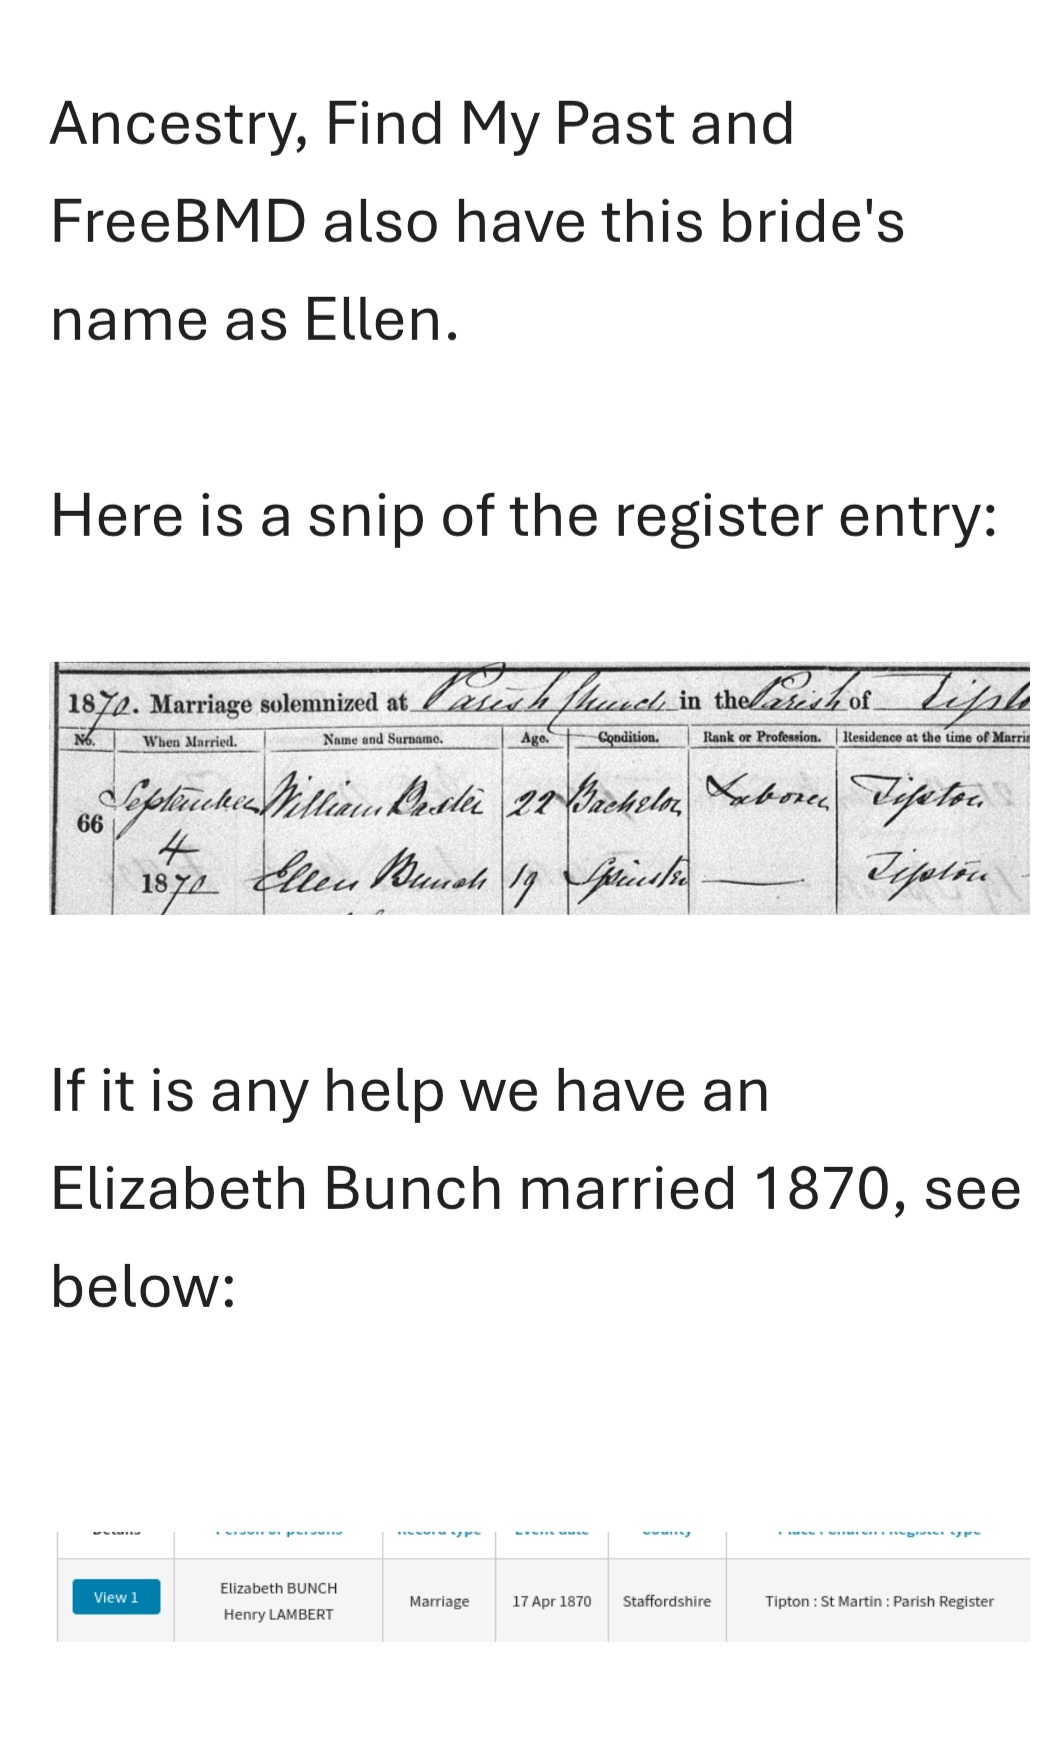 Ancestry, Find My Past and
FreeBMD also have this bride's
name as Ellen.
Here is a snip of the register entry:
1870. Marriage solemnized at Parish Church in the Parish of Tipto
No. When Married. Name and Surname. Age. Condition. Rank or Profession. Residence at the time of Marria
66 September William 22 Bachelor Laborer Tipton
4
1870 Ellen Bunch 19 Spinster Tipton
If it is any help we have an
Elizabeth Bunch married 1870, see
below:
Details Person or persons Record type Event date County Place : Church : Register type
View 1 Elizabeth BUNCH Marriage 17 Apr 1870 Staffordshire Tipton : St Martin : Parish Register
Henry LAMBERT